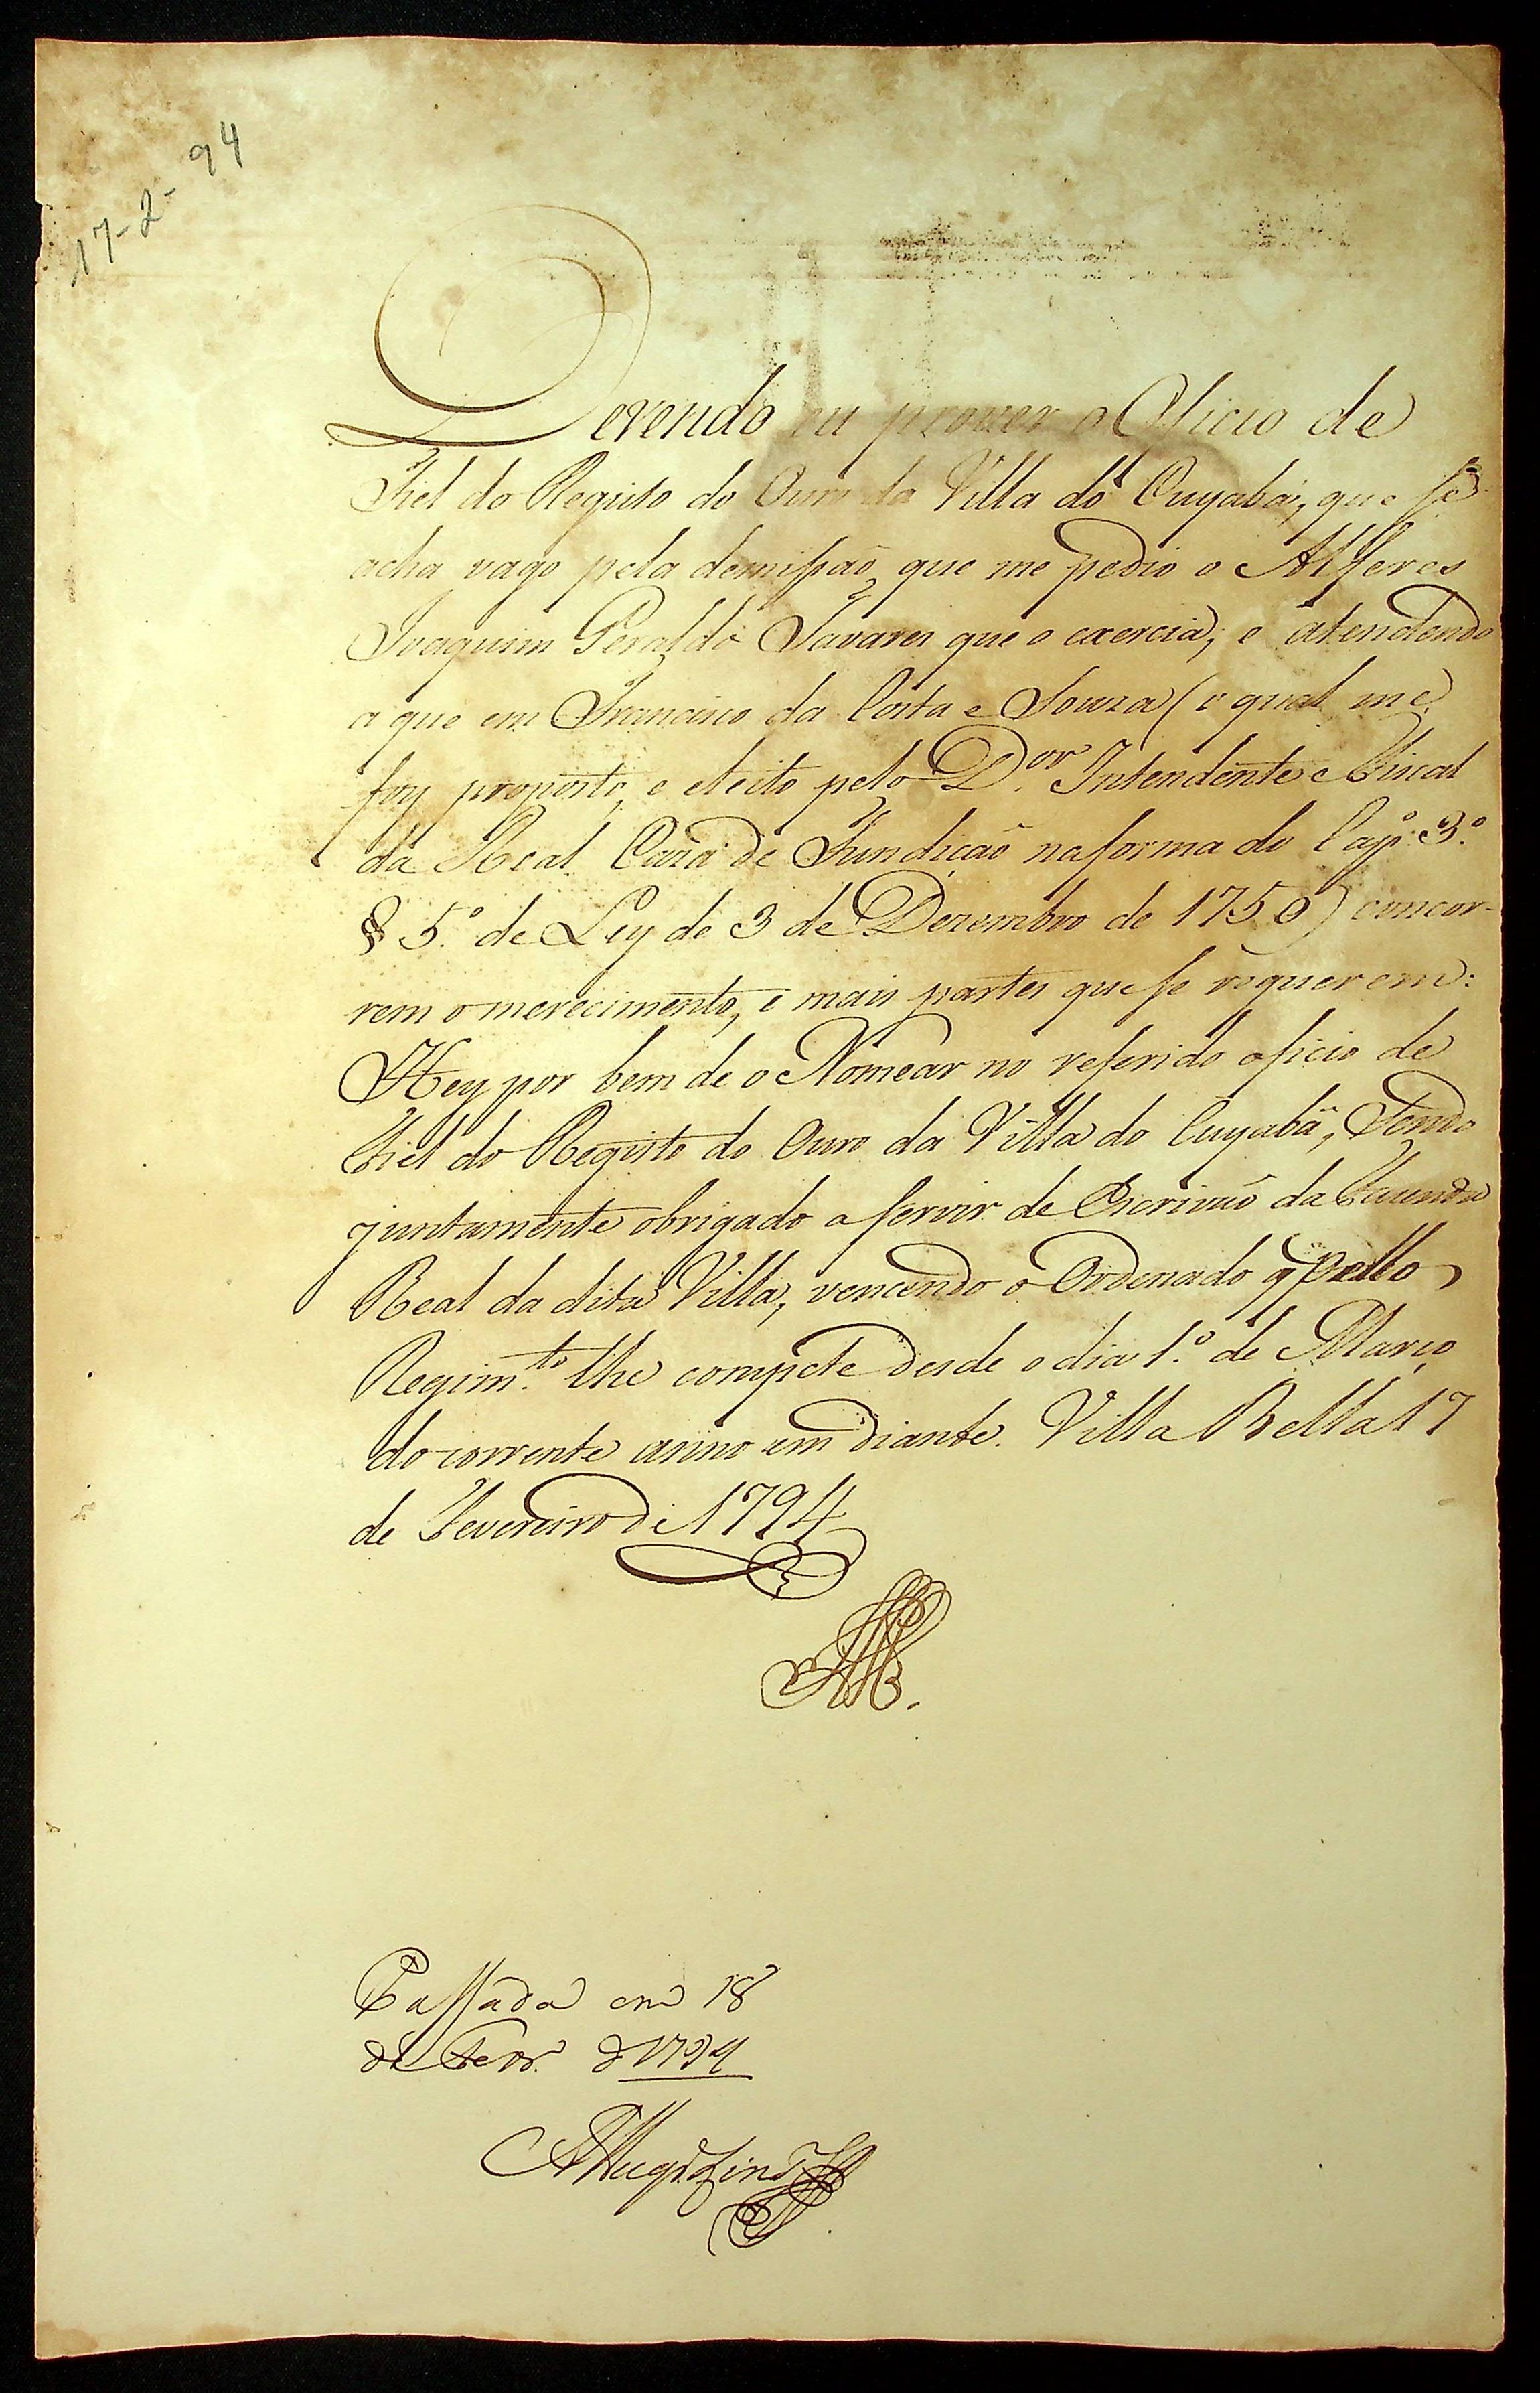 17-2-94
Devendo eu prover o Oficio de
Fiel do Registo do Ouro da Villa do Cuyabá, que se
acha vago pela demissaõ que me pedio o Alferes
Joaquim Geraldo Tavares que o exercia; e atendendo
a que em Francisco da Costa e Souza (o qual me
foy proposto, e eleito pelo D.or Intendente e Fiscal
da Real Caza de Fundiçaõ na forma do Cap.º 3.º
§ 5.º de Ley de 3 de Dezembro de 1750) concor-
rem o merecimento, e mais partes que se requerem:
Hey por bem de o Nomear no referido oficio de
Fiel do Registo do Ouro da Villa do Cuyabá, sendo
juntamente obrigado a servir de Escrivaõ da Fazenda
Real da dita Villa, vencendo o Ordenado q pello
Regim.to lhe compete desde o dia 1.º de Março
do corrente anno em diante. Villa Bella 17
de Fevereiro de 1794
Passada em 18
de Fevr. d 1794